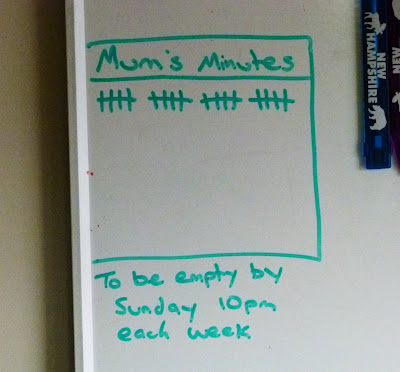 Mum's Minutes
To be empty by
Sunday 10pm
each week
NEW HAMPSHIRE
NEW